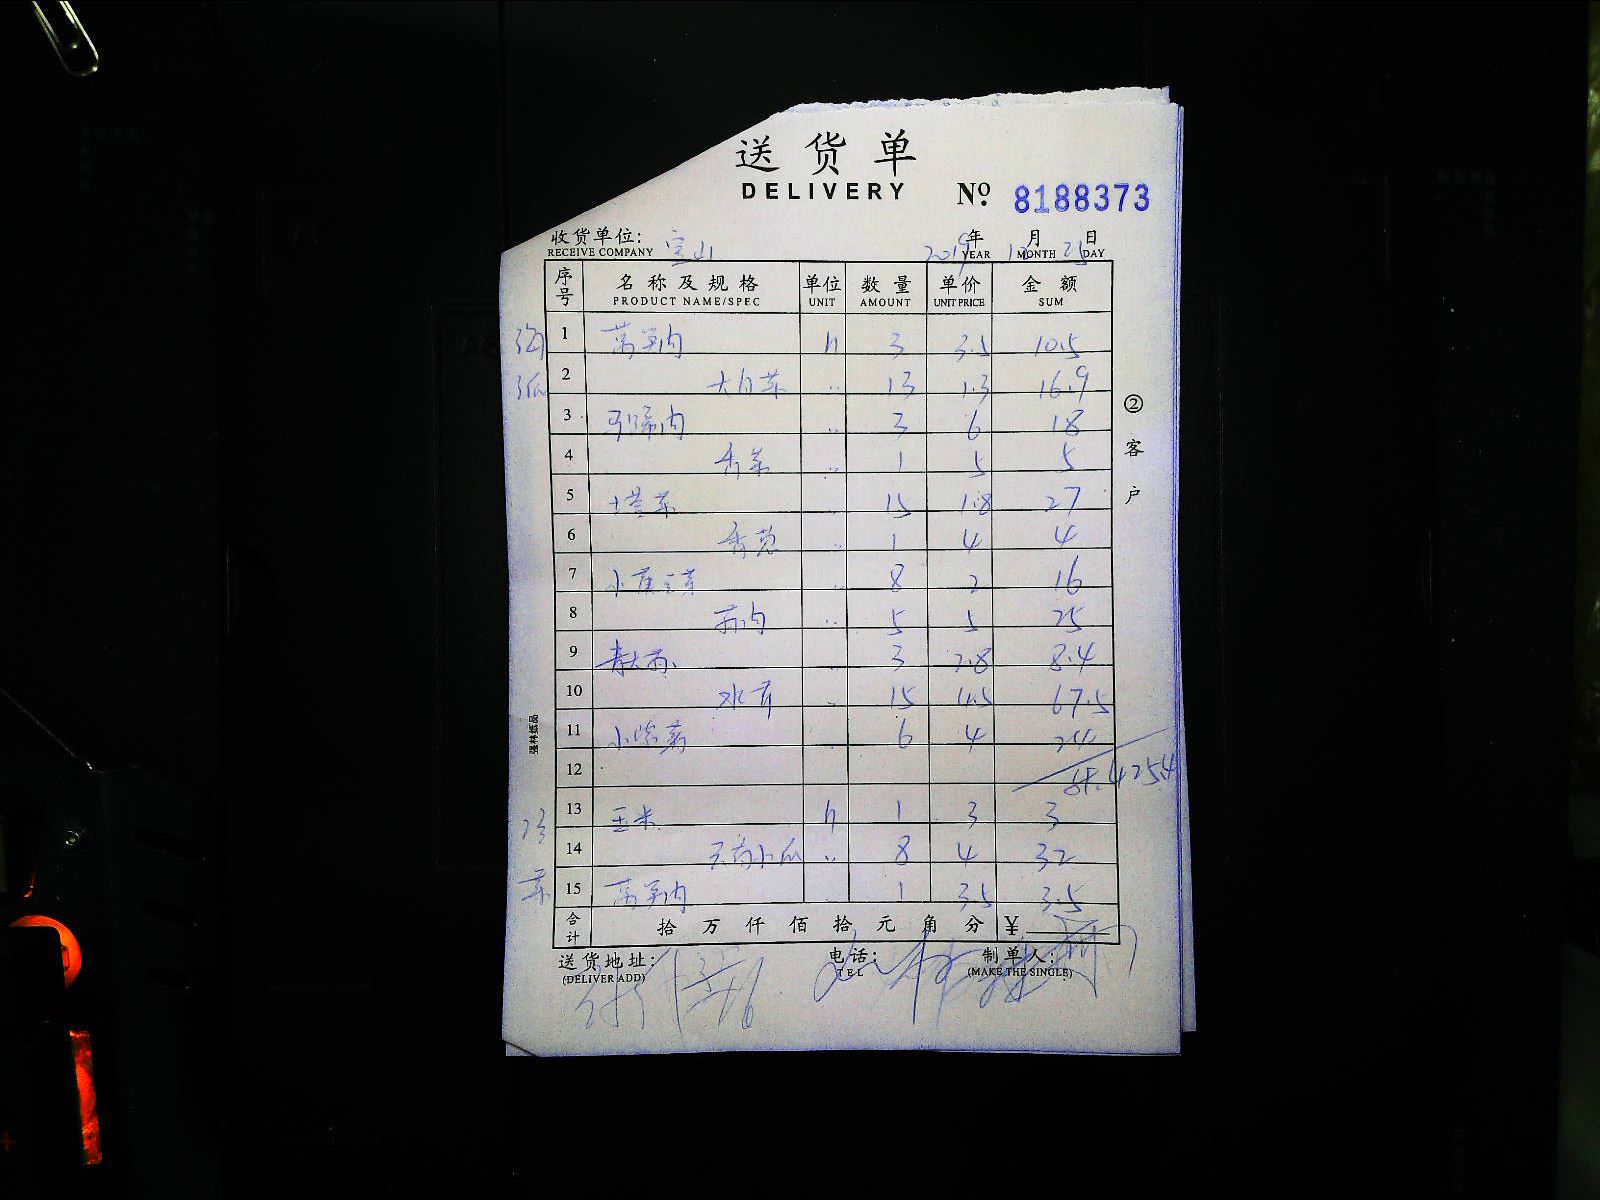 送货单
DELIVERY
№ 8188373
收货单位: 宝山 2019年 月 25日
RECEIVE COMPANY YEAR MONTH DAY
序号 名称及规格 单位 数量 单价 金额
PRODUCT NAME/SPEC UNIT AMOUNT UNIT PRICE SUM
1 莴笋肉 3 3.5 10.5
2 大白菜 13 1.3 16.9
3 马蹄肉 3 6 18
4 香菜 1 5 5
5 塔菜 15 1.8 27
6 香葱 1 4 4
7 小黄豆芽 8 2 16
8 5 5 25
9 3 2.8 8.4
10 水芹 15 4.5 67.5
11 小紫薯 6 4 24
12
13 玉米 1 3 3
14 小瓜 8 4 32
15 莴笋肉 1 3.5 3.5
合计 拾万仟佰拾元角分 ¥
送货地址: 电话: 制单人:
(DELIVER ADD) TEL (MAKE THE SINGLE)
②客户
强林纸品